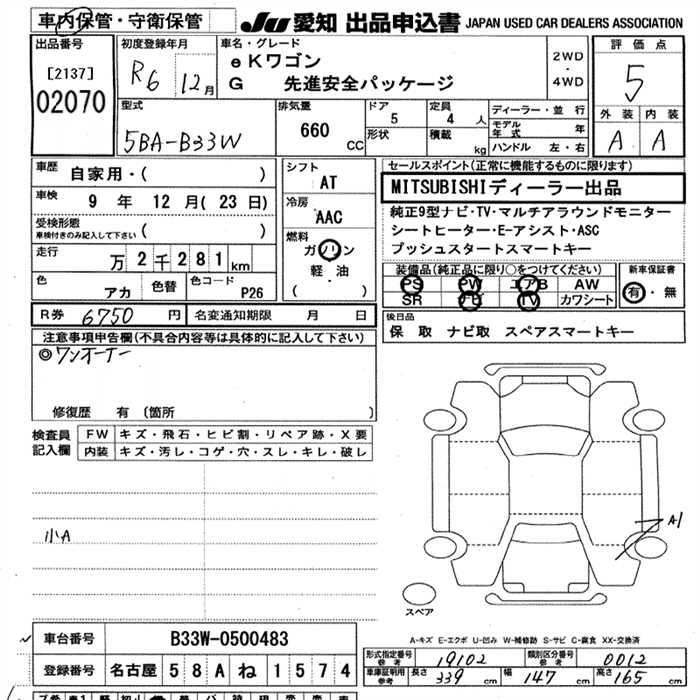 車内保管・守衛保管
JU 愛知 出品申込書 JAPAN USED CAR DEALERS ASSOCIATION
出品番号
[2137]
02070
初度登録年月
R6 12月
車名・グレード
eKワゴン
G 先進安全パッケージ
2WD
・
4WD
評価点
5
外装 内装
A A
型式
5BA-B33W
排気量
660 CC
ドア
5
形状
定員
4 人
積載
kg
ディーラー・並行
モデル年式 年
ハンドル 左・右
車歴
自家用・( )
車検
9 年 12 月( 23 日)
受検形態
車検付きのみ記入して下さい ( )
走行
万 2 千 2 8 1 km
色
アカ
色替
色コード
P26
シフト
AT
冷房
AAC
燃料
ガソリン
軽・油
( )
セールスポイント(正常に機能するものに限ります)
MITSUBISHIディーラー出品
純正9型ナビ・TV・マルチアラウンドモニター
シートヒーター・E-アシスト・ASC
プッシュスタートスマートキー
装備品(純正品に限り○をつけてください)
PS PW エアB AW
SR ナビ TV カワシート
新車保証書
有・無
R券 6750 円 名変通知期限 月 日
後日品
保 取 ナビ取 スペアスマートキー
注意事項申告欄(不具合内容等は具体的に記入して下さい)
◎ワンオーナー
修復歴 有 〔箇所 〕
検査員
記入欄
FW キズ・飛石・ヒビ割・リペア跡・X要
内装 キズ・汚レ・コゲ・穴・スレ・キレ・破レ
小A
A1
スペア
A-キズ E-エクボ U-凹み W-補修跡 S-サビ C-腐食 XX-交換済
車台番号 B33W-0500483
登録番号 名古屋 5 8 A ね 1 5 7 4
形式指定番号
参考
19102
類別区分番号
参考
0012
車庫証明
参考
長さ 339 cm 幅 147 cm 高さ 165 cm